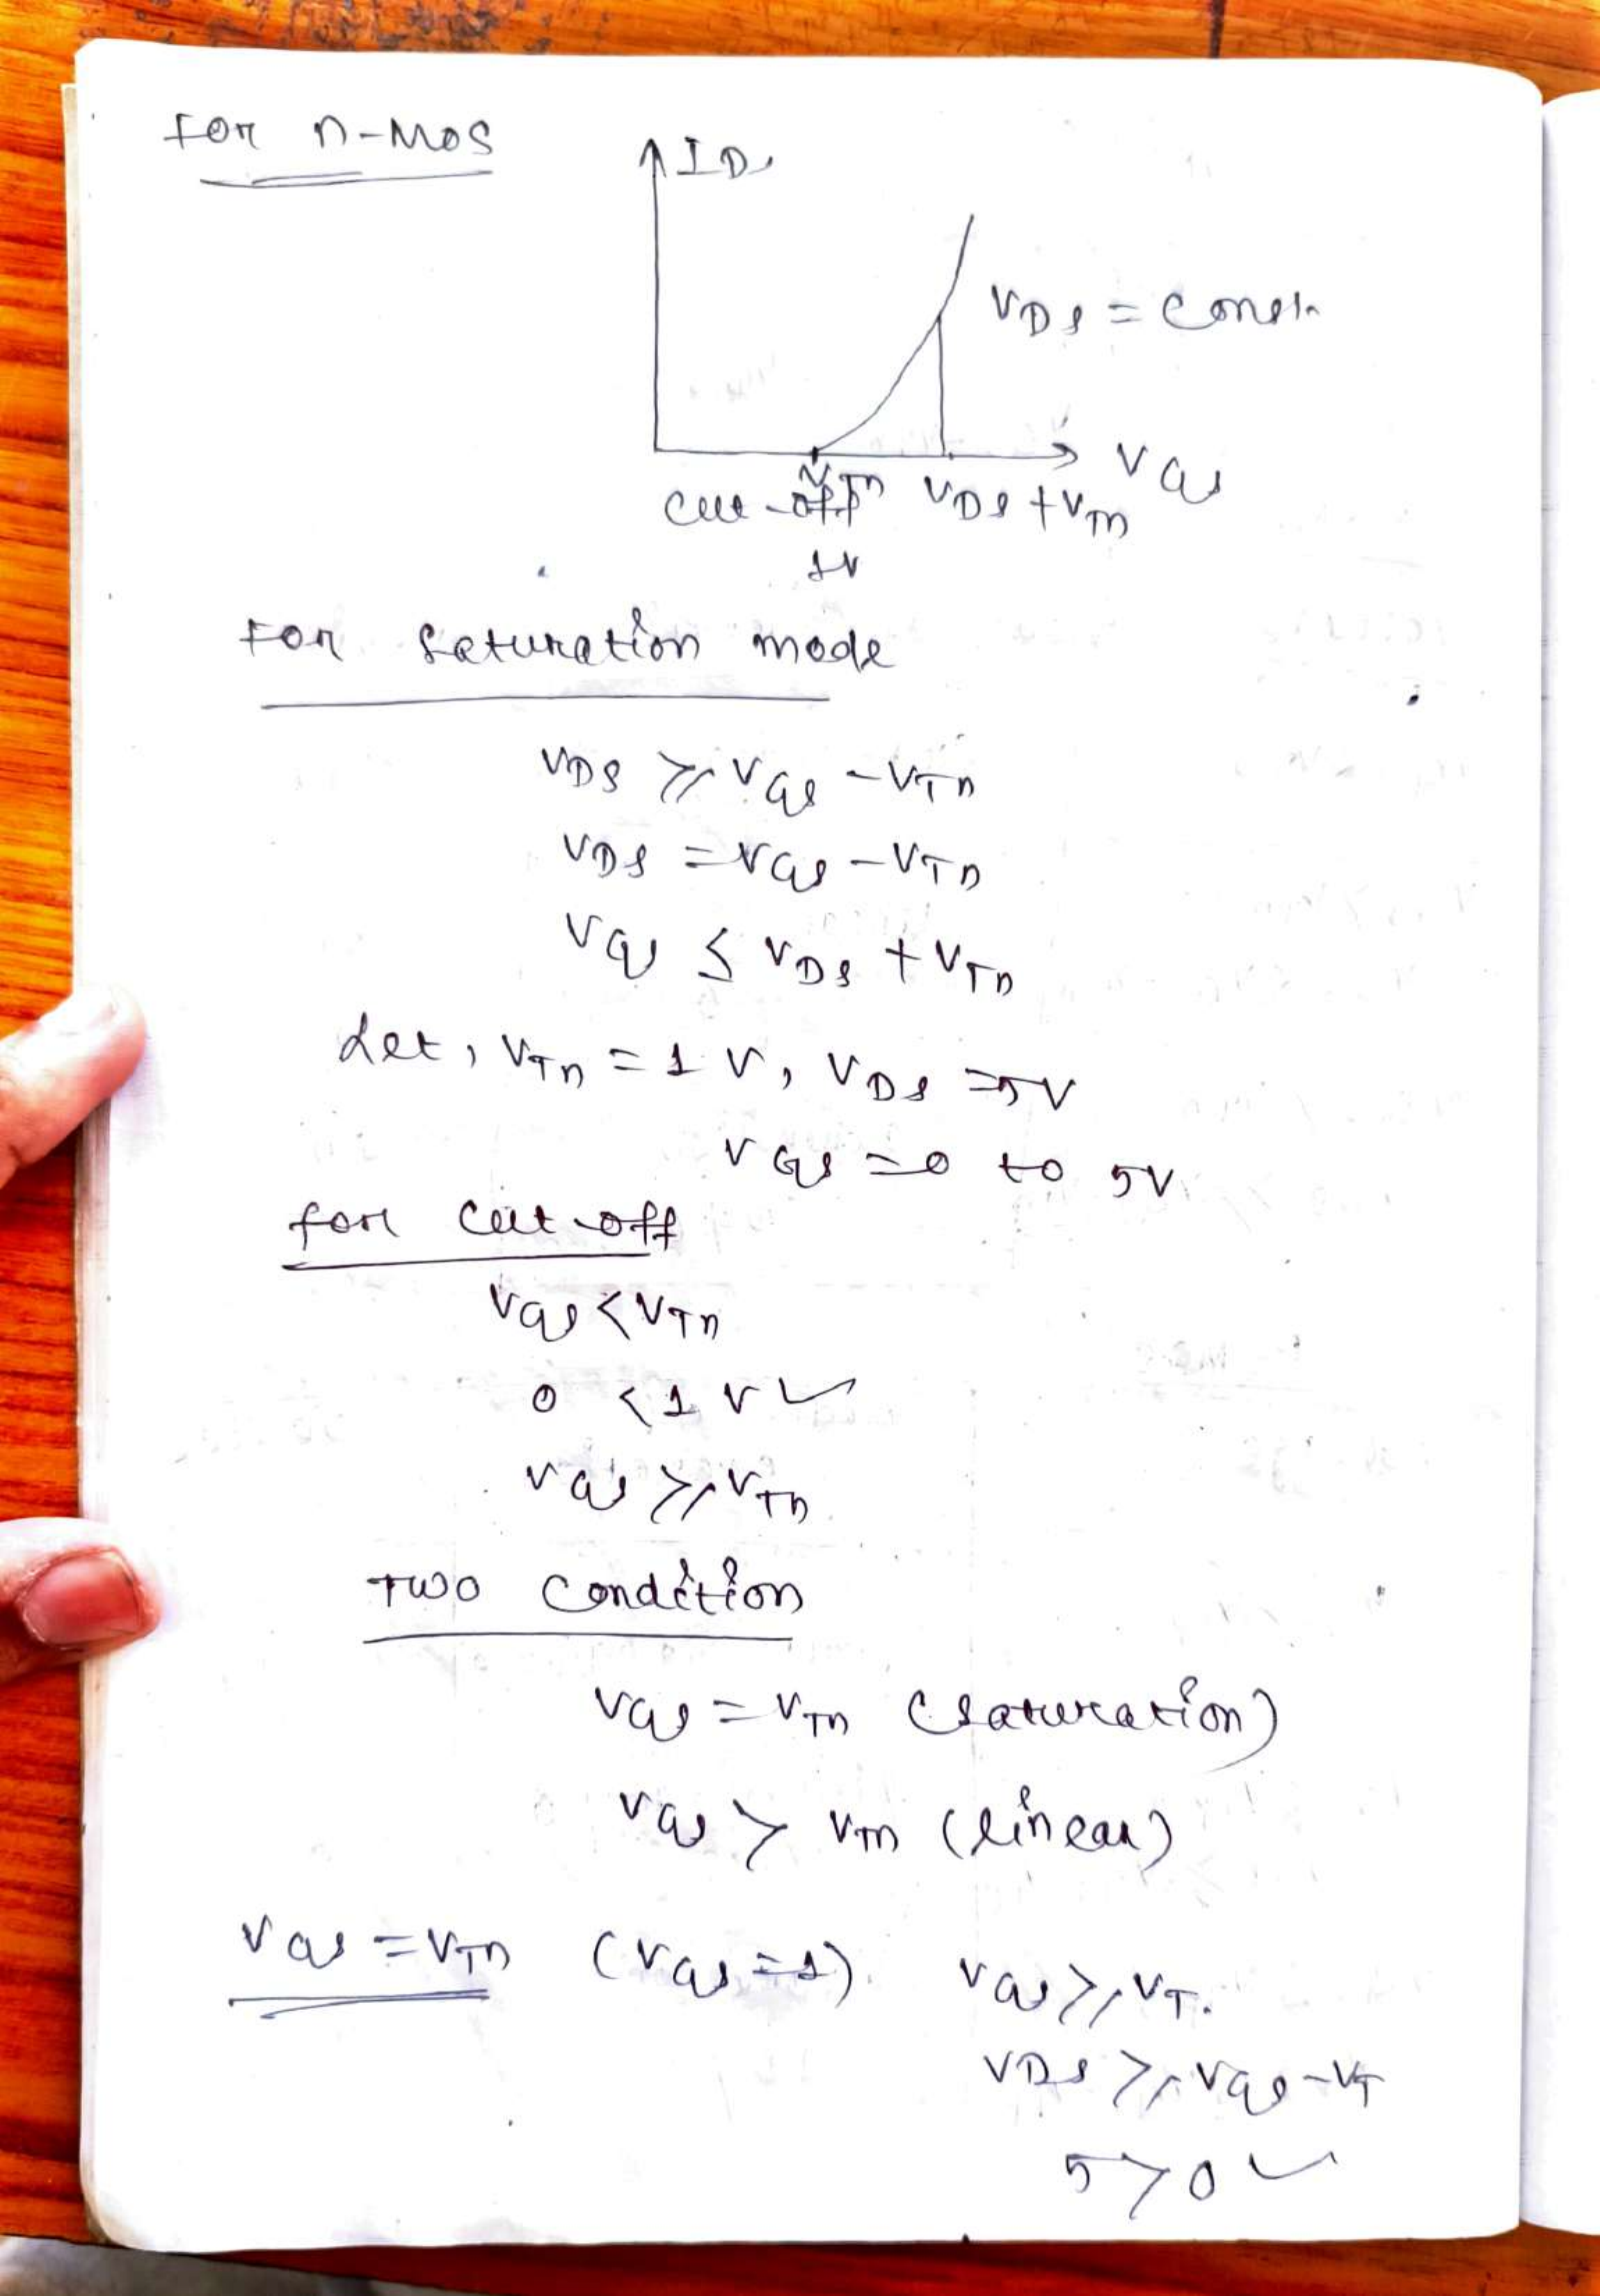 For n-MOS
ID
VDS = Const.
VGS
VTn
cut-off
VDS + VTn
1V
For saturation mode
VDS ≥ VGS - VTn
VDS = VGS - VTn
VGS ≤ VDS + VTn
Let, VTn = 1 V, VDS = 5V
VGS = 0 to 5V
for cut-off
VGS < VTn
0 < 1 V ✓
VGS ≥ VTn
Two Condition
VGS = VTn (saturation)
VGS > VTn (linear)
VGS = VTn (VGS = 1) VGS ≥ VT.
VDS ≥ VGS - VT
5 > 0 ✓